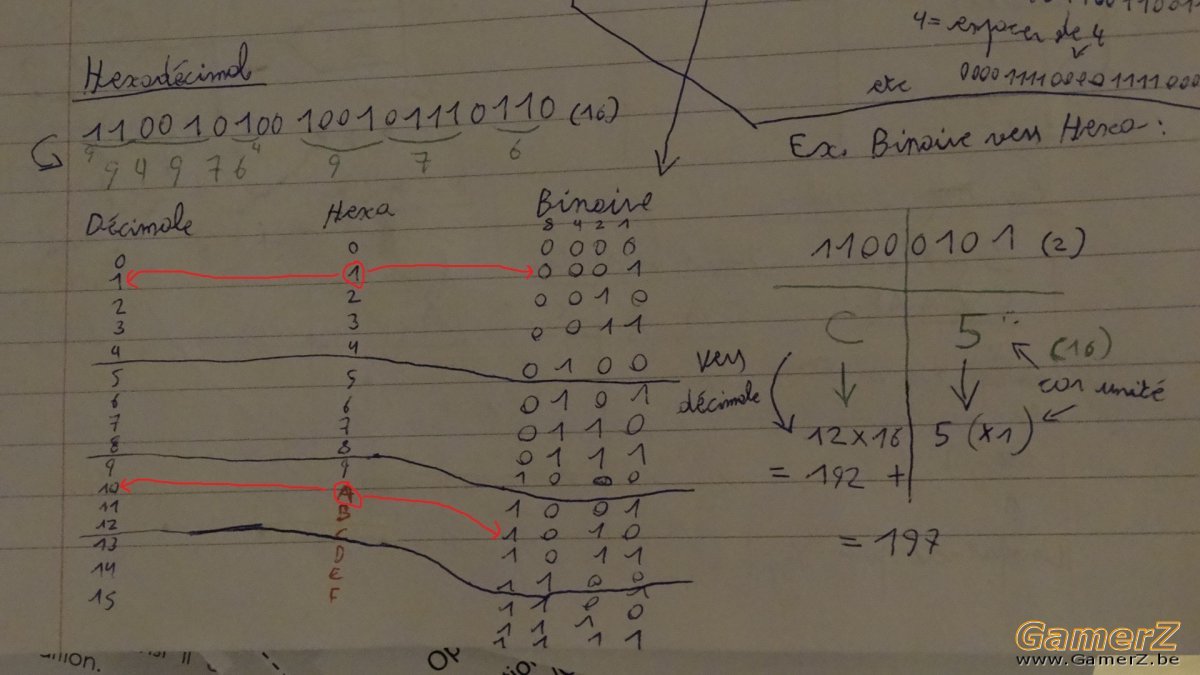 4 = espacer de 4
etc 0000111100001111000
Hexadécimal
110010100 100101110110 (16)
9 9 4 9 7 6 4 9 7 6
Ex. Binaire vers Hexa :
Décimale Hexa Binaire
8 4 2 1
0 0 0 0 0 0
1 1 0 0 0 1
2 2 0 0 1 0
3 3 0 0 1 1
4 4 0 1 0 0
5 5 0 1 0 1
6 6 0 1 1 0
7 7 0 1 1 1
8 8 1 0 0 0
9 9 1 0 0 1
10 A 1 0 1 0
11 B 1 0 1 1
12 C 1 1 0 0
13 D 1 1 0 1
14 E 1 1 1 0
15 F 1 1 1 1
1100 0101 (2)
C 5 (16)
car unité
vers
décimale
12x16 5 (x1)
= 192 +
= 197
union.
GamerZ
www.GamerZ.be